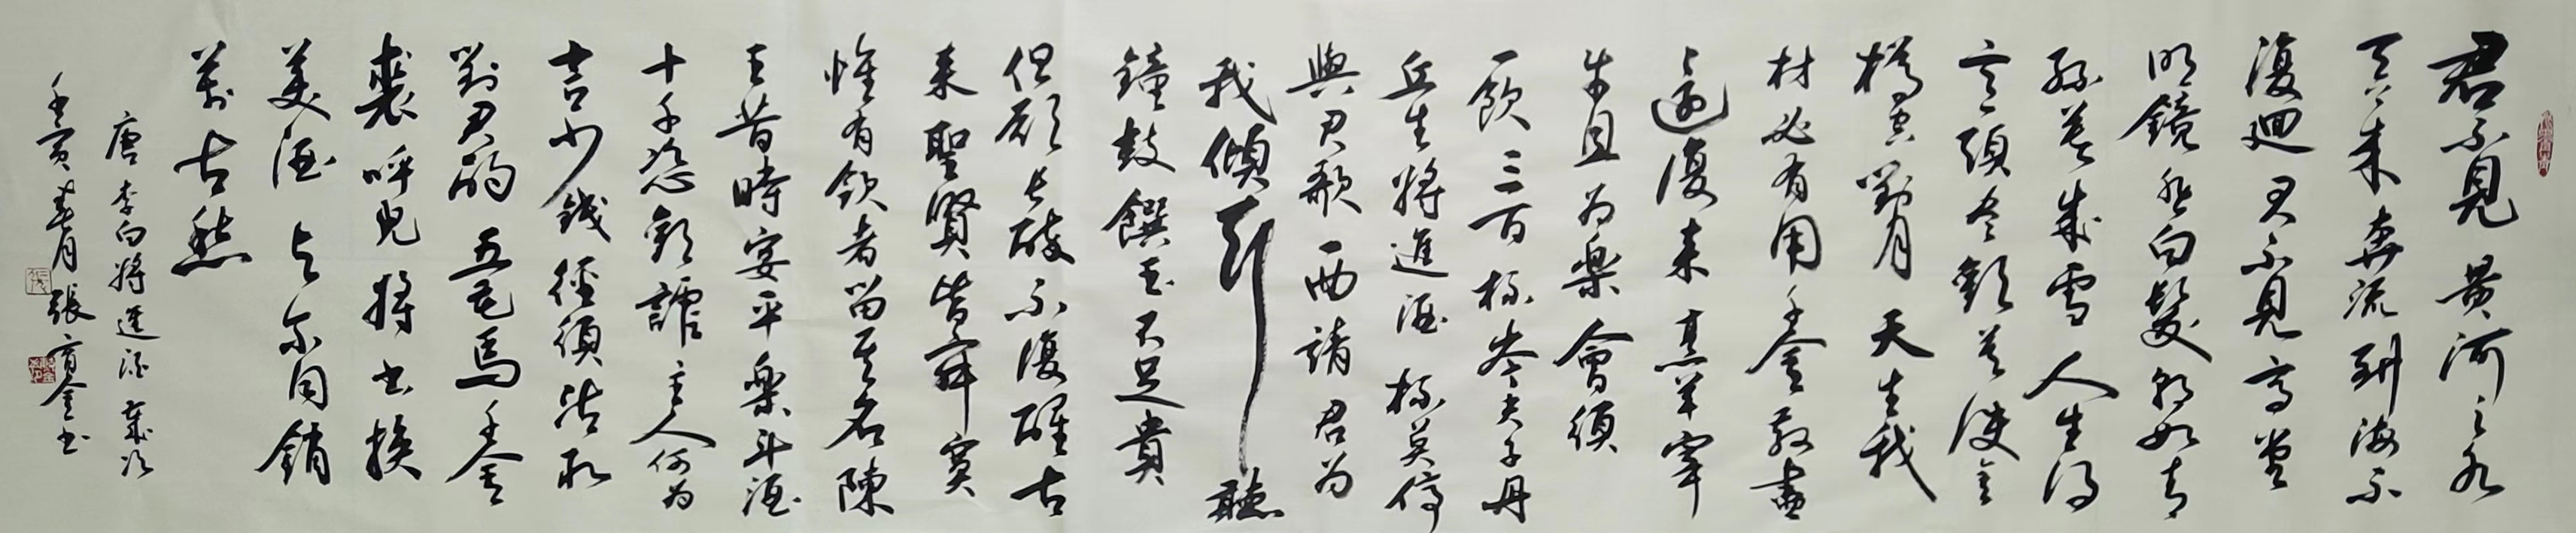 君不見黄河之水
天上来奔流到海不
復迴君不見高堂
明鏡悲白髮朝如青
絲暮成雪人生得
意須盡歡莫使金
樽空對月天生我
材必有用千金散盡
還復来烹羊宰
牛且為樂會須
一飲三百杯岑夫子丹
丘生將進酒杯莫停
與君歌一曲請君為
我傾耳聽
鐘鼓饌玉不足貴
但願長醉不復醒古
来聖賢皆寂寞
惟有飲者留其名陳
王昔時宴平樂斗酒
十千恣歡謔主人何為
言少錢徑須沽取
對君酌五花馬千金
裘呼兒將出換
美酒與尔同銷
萬古愁
唐李白將進酒歲次
壬寅春月張育金書